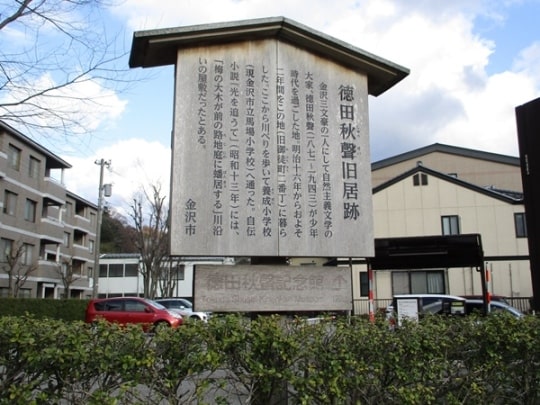 徳田秋聲旧居跡
金沢三文豪の一人にして自然主義文学の
大家、徳田秋聲(一八七一〜一九四三)が少年
時代を過ごした地。明治十六年からおよそ
二年間をこの地(旧御徒町二番丁)に暮ら
した。ここから川べりを歩いて養成小学校
(現金沢市立馬場小学校)へ通った。自伝
小説「光を追うて」(昭和十三年)には、
「梅の大木が前の路地庭に蟠居する」川沿
いの屋敷だったとある。
金沢市
徳田秋聲記念館
Tokuda Shusei Kinenkan Museum